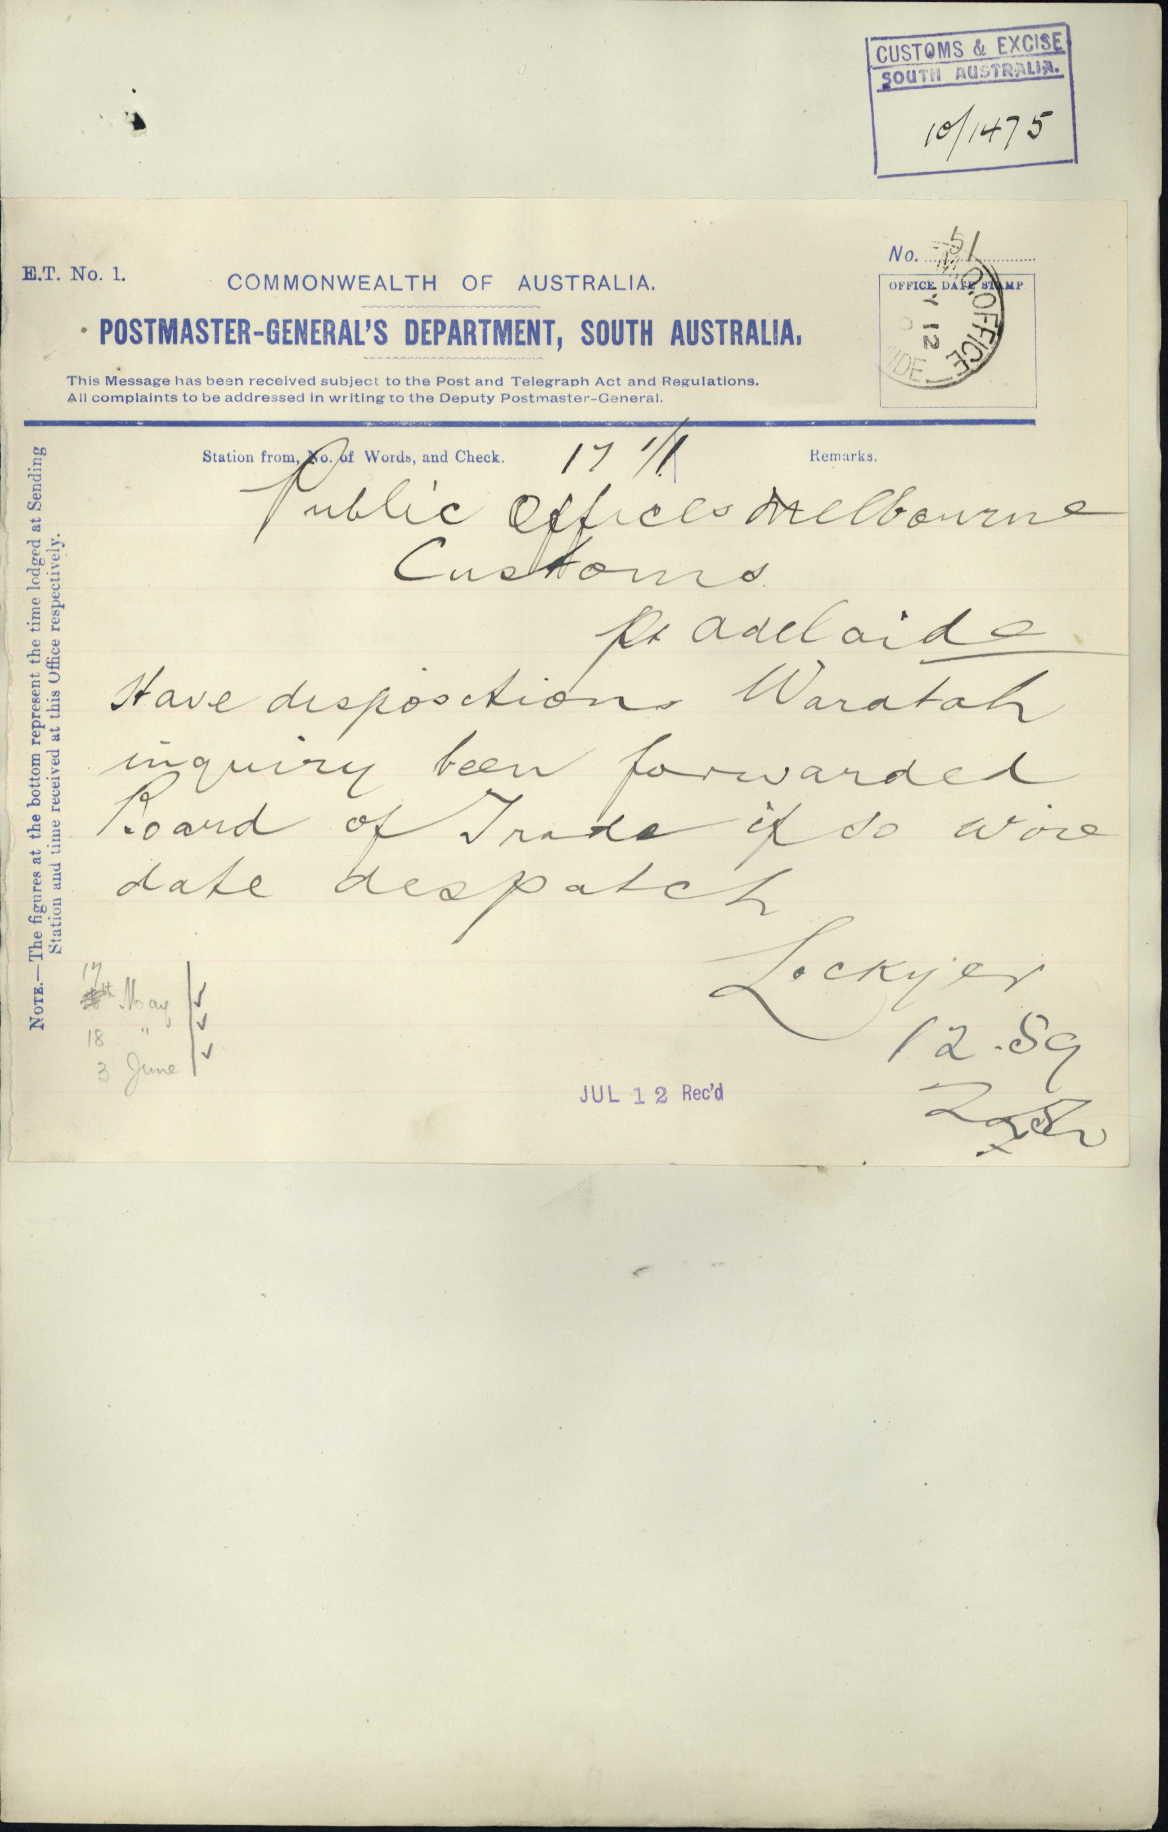 CUSTOMS & EXCISE
SOUTH AUSTRALIA.
10/1475
E.T. No. 1.
COMMONWEALTH OF AUSTRALIA.
POSTMASTER-GENERAL'S DEPARTMENT, SOUTH AUSTRALIA.
This Message has been received subject to the Post and Telegraph Act and Regulations.
All complaints to be addressed in writing to the Deputy Postmaster-General.
No. 51
OFFICE DATE STAMP
O.OFFICE
Y 12
IDE
Station from, No. of Words, and Check.
17 1/1
Remarks.
Public Offices Melbourne
Customs
Pt Adelaide
Have dispositions Waratah
inquiry been forwarded
Board of Trade if so wire
date despatch
Lockyer
12.59
NOTE.—The figures at the bottom represent the time lodged at Sending
Station and time received at this Office respectively.
17
May
18 "
3 June
JUL 12 Rec'd